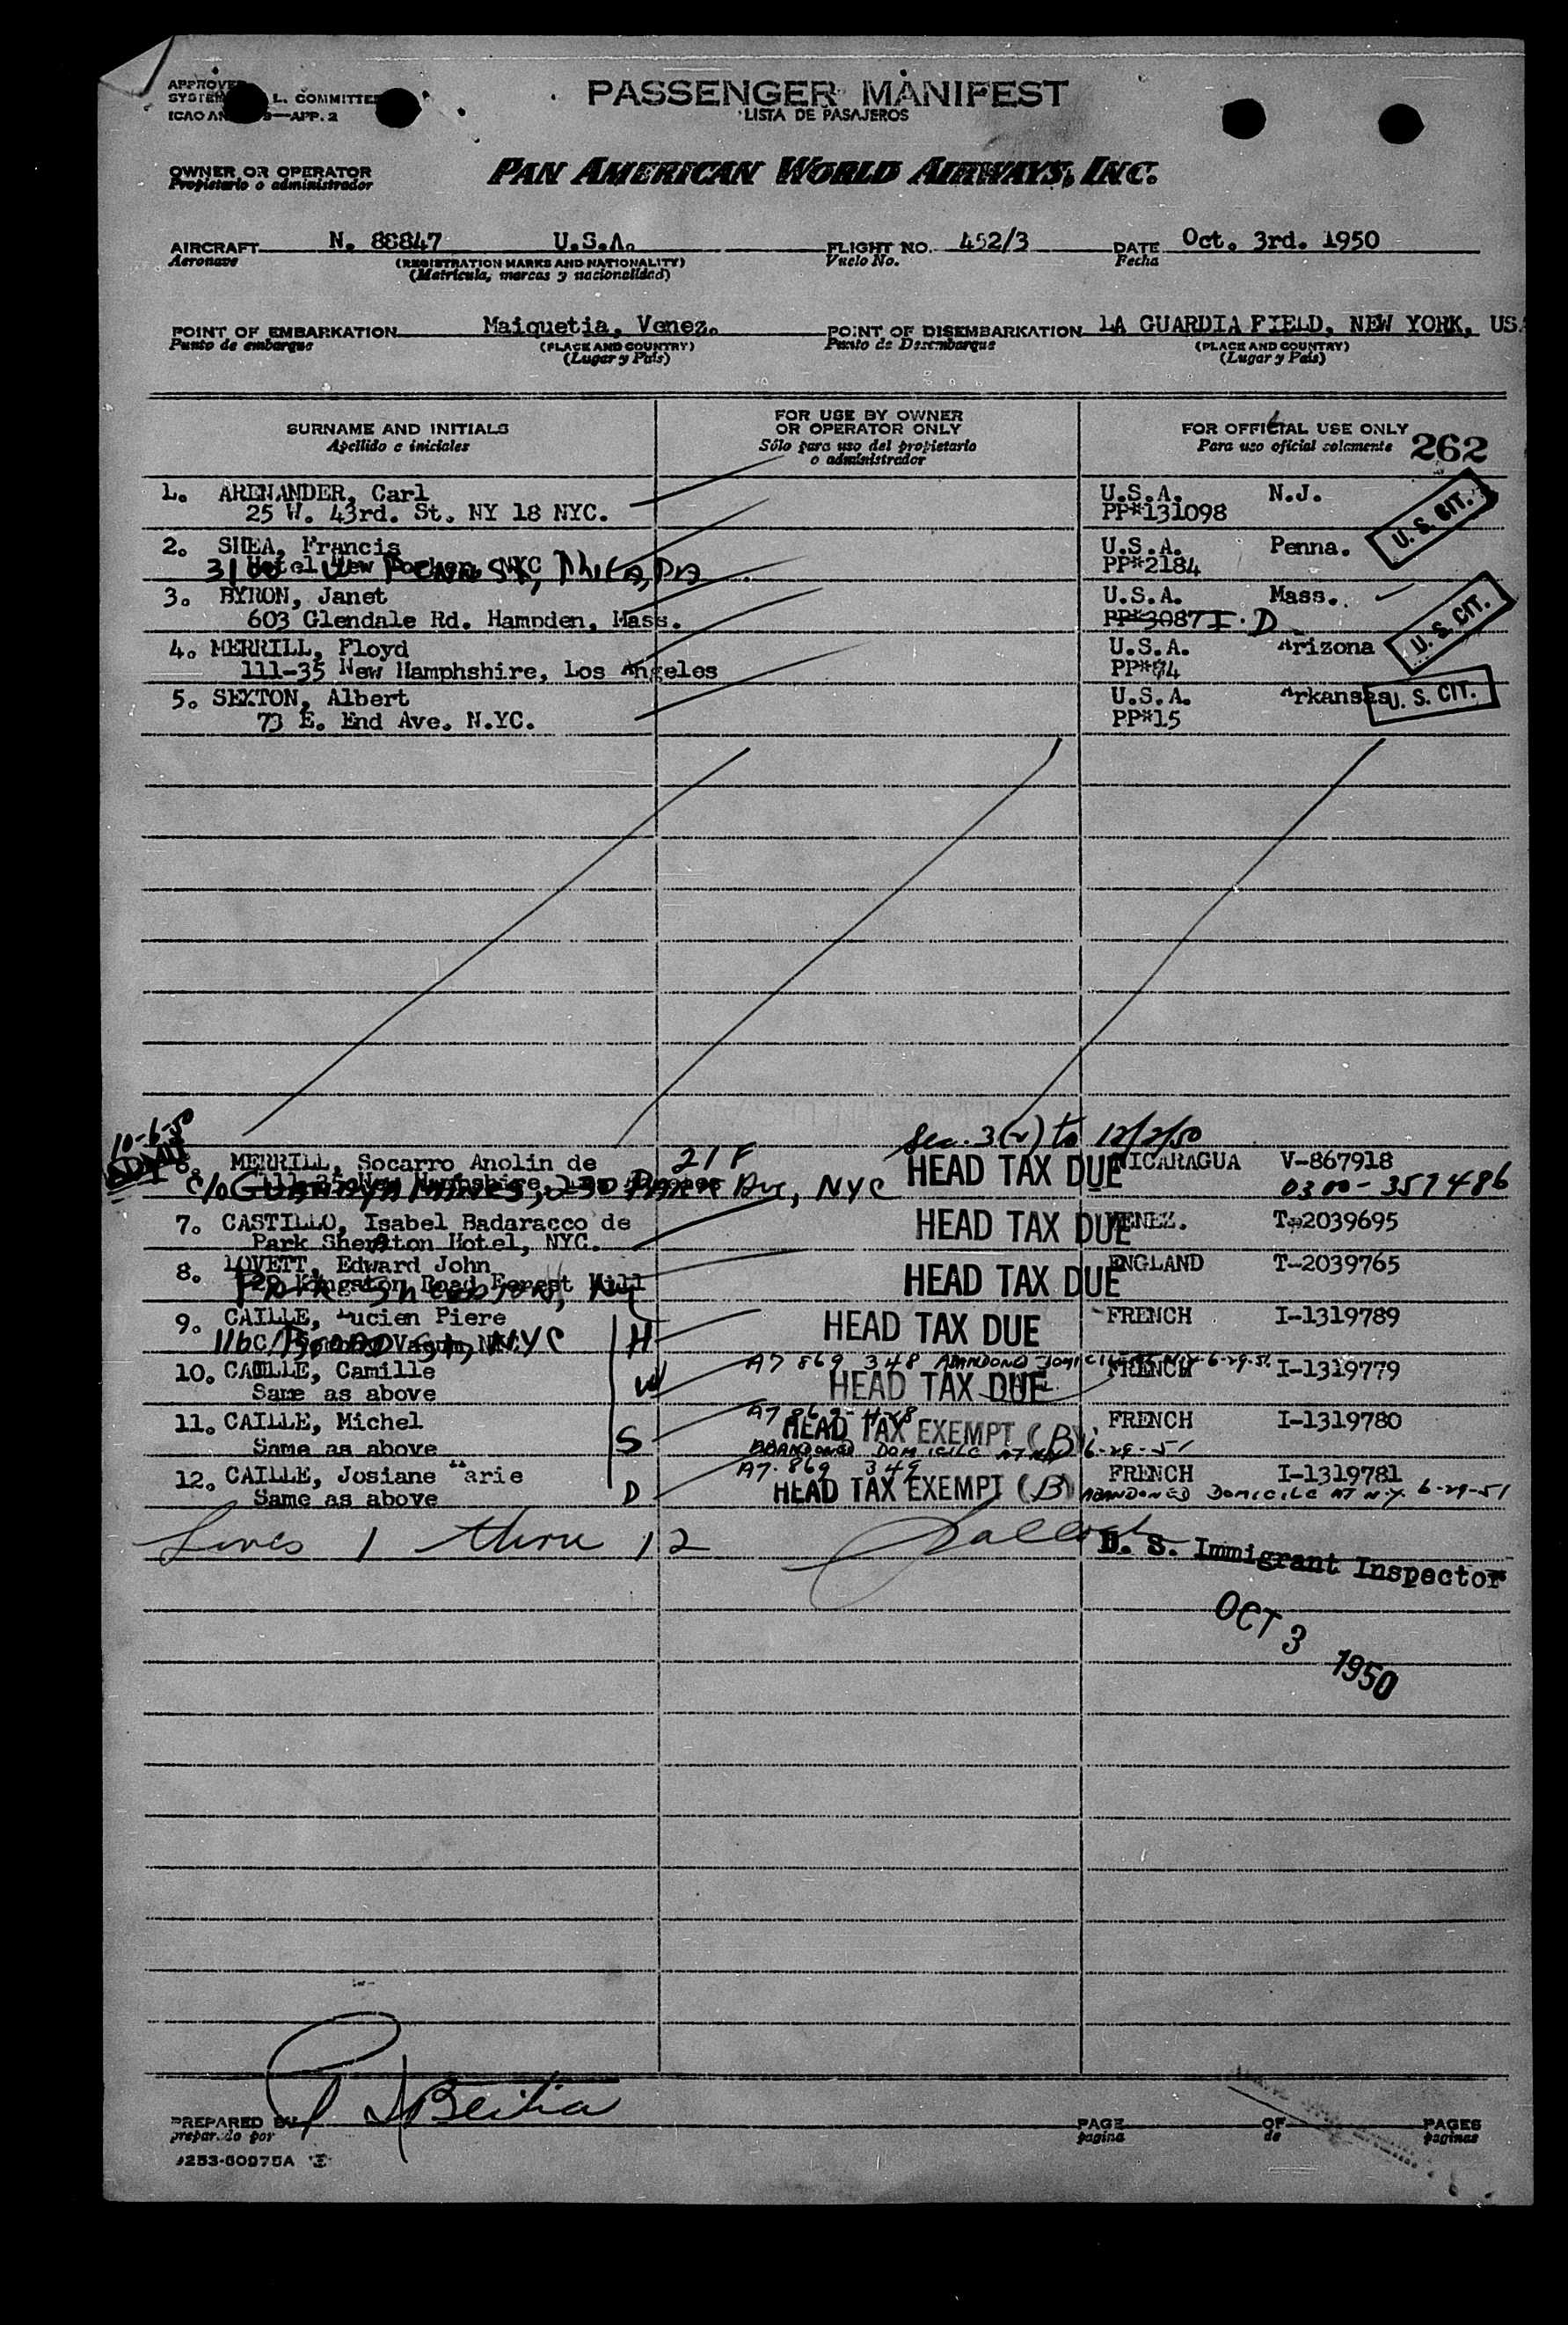 APPROVED
SYSTEM L. COMMITTEE
ICAO AN 9—APP. 2
PASSENGER MANIFEST
LISTA DE PASAJEROS
OWNER OR OPERATOR
Propietario o administrador
PAN AMERICAN WORLD AIRWAYS, INC.
AIRCRAFT N. 88847 U.S.A. FLIGHT NO. 452/3 DATE Oct. 3rd. 1950
Aeronave (REGISTRATION MARKS AND NATIONALITY) Vuelo No. Fecha
(Matricula, marcas y nacionalidad)
POINT OF EMBARKATION Maiquetia, Venez. POINT OF DISEMBARKATION LA GUARDIA FIELD, NEW YORK, USA
Punto de embarque (PLACE AND COUNTRY) Punto de Desembarque (PLACE AND COUNTRY)
(Lugar y País) (Lugar y País)
SURNAME AND INITIALS
Apellido e iniciales
FOR USE BY OWNER
OR OPERATOR ONLY
Sólo para uso del propietario
o administrador
FOR OFFICIAL USE ONLY
Para uso oficial solamente
262
1. ARENANDER, Carl U.S.A. N.J.
25 W. 43rd. St. NY 18 NYC. PP*131098
U. S. CIT.
2. SHEA, Francis U.S.A. Penna.
Hotel New Yorker, NYC PP*2184
Phila, PA
3. BYRON, Janet U.S.A. Mass.
603 Glendale Rd. Hampden, Mass. PP*3087 I.D
U. S. CIT.
4. MERRILL, Floyd U.S.A. Arizona
111-35 New Hamphshire, Los Angeles PP*84
5. SEXTON, Albert U.S.A. Arkansas
73 E. End Ave. N.YC. PP*15
U. S. CIT.
10-6-50
ADMIT
Sec. 3(2) to 12/2/50
6. MERRILL, Socarro Anolin de 21 F HEAD TAX DUE NICARAGUA V-867918
Park Ave, NYC 0300-357486
7. CASTILLO, Isabel Badaracco de HEAD TAX DUE VENEZ. T-2039695
Park Sheraton Hotel, NYC.
8. LOVETT, Edward John HEAD TAX DUE ENGLAND T-2039765
9. CAILLE, Lucien Piere H HEAD TAX DUE FRENCH I-1319789
NYC
A7 869 348 ABANDONED DOMICILE AT N.Y. 6-29-51
10. CAILLE, Camille W HEAD TAX DUE FRENCH I-1319779
Same as above
11. CAILLE, Michel S HEAD TAX EXEMPT (B) FRENCH I-1319780
Same as above ABANDONED DOMICILE AT NY 6-29-51
A7-869 349
12. CAILLE, Josiane Marie D HEAD TAX EXEMPT (B) FRENCH I-1319781
Same as above ABANDONED DOMICILE AT N.Y. 6-29-51
Lines 1 thru 12
U. S. Immigrant Inspector
OCT 3 1950
PREPARED BY Beitia PAGE OF PAGES
preparado por pagina de paginas
9253-60975A